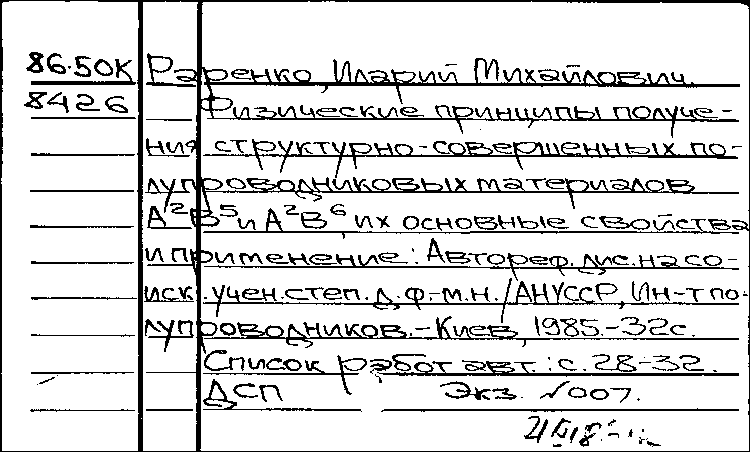 86.50К Раренко, Иларий Михайлович.
8426 Физические принципы получе-
ния структурно-совершенных по-
лупроводниковых материалов
A²B⁵ и A²B⁶, их основные свойства
и применение: Автореф. дис. на со-
иск. учен. степ. д. ф.-м.н. / АН УССР, Ин-т по-
лупроводников. - Киев, 1985. - 32с.
Список работ авт.: с. 28-32.
ДСП Экз. №007.